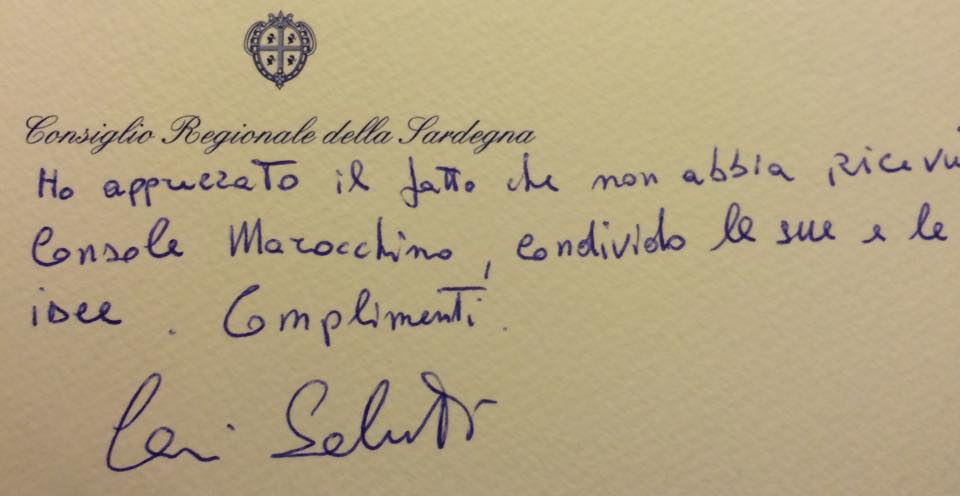 Consiglio Regionale della Sardegna
Ho apprezzato il fatto che non abbia ricevu
Console Marocchino, condivido le sue e le
idee. Complimenti.
Cari Saluti